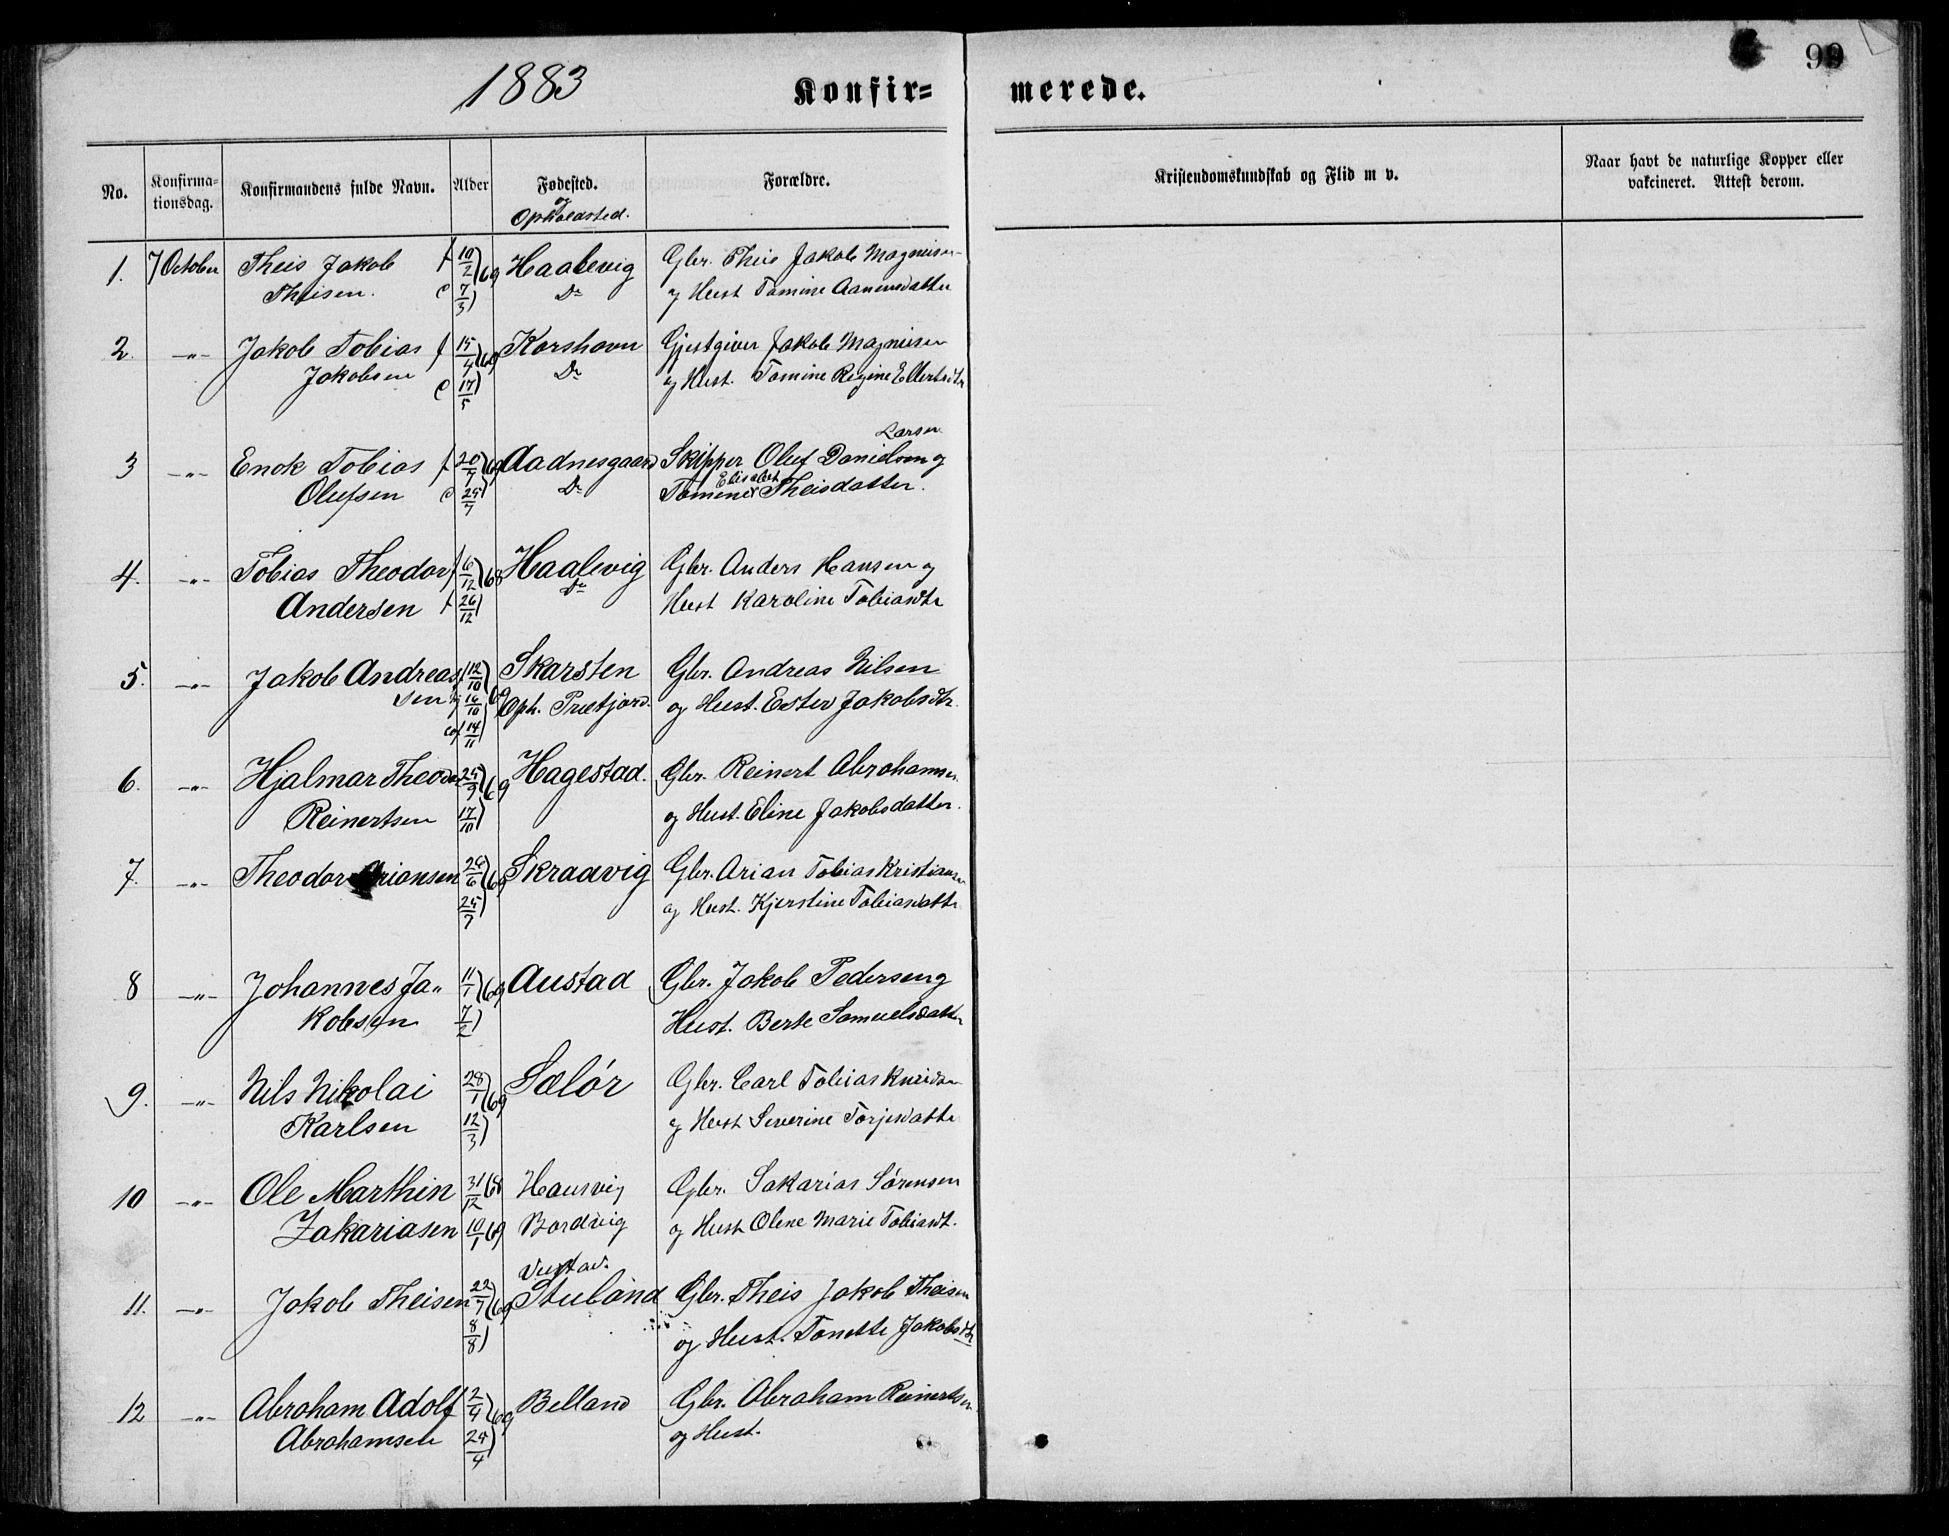 1883 Konfir= merede. 99
No. Konfirma-tionsdag. Konfirmandens fulde Navn. Alder Fødested. og Opholdsted. Forældre. Kristendomskundskab og Flid m v. Naar havt de naturlige Kopper eller vakcineret. Attest derom.
1. 7 October Theis Jakob f 10/2 69 Haalevig Gbr. Theis Jakob Magnusen
Theisen. d 7/3 Do og Hust Tomine Aanensdatter
2. -"- Jakob Tobias f 15/4 69 Korshavn Gjestgiver Jakob Magnusen
Jakobsen d 17/5 Do og Hust. Tomine Regine Ellertsdtr
Larsen
3 -"- Enok Tobias f 20/7 69 Aadnesgaard Skipper Oluf Danielsen og
Olufsen d 25/7 Do Tomine Elisabet Theisdatter.
4. -"- Tobias Theodor f 6/12 68 Haalevig Gbr. Anders Hansen og
Andersen f 26/12 Do Hust Karoline Tobiasdtr
5. -"- Jakob Andreas 12/10 Skarsten Gbr. Andreas Nilsen
sen 16/10 Oph. og Hust. Ester Jakobsdtr.
14/11
6. -"- Hjalmar Theodor 25/9 69 Hagestad. Gbr. Reinert Abrahamsen
Reinertsen 17/10 og Hust. Eline Jakobsdatter.
7. -"- Theodor Ariansen 24/6 69 Skraavig Gbr. Arian Tobias Kristiansen
25/7 og Hust. Kjerstine Tobiasdattr
8 -"- Johannes Ja- 11/1 69 Austad Gbr. Jakob Pedersen og
kobsen 7/2 Hust. Berte Samuelsdatter
9. -"- Nils Nikolai 28/1 69 Sælør Gbr. Carl Tobias
Karlsen 12/3 og Hust Severine Torjesdattr
10 -"- Ole Marthin 31/12 68 Hausvig Gbr. Sakarias Sørensen
Zakariasen 10/1 69 Bordvig og Hust Olene Marie Tobiasdt.
11. -"- Jakob Theisen 22/7 69 Stuland Gbr. Theis Jakob Theisen
8/8 og Hust. Tonette Jakobsdtr
12 -"- Abraham Adolf 2/4 69 Belland Gbr. Abraham Reinertsen
Abrahamsen 25/4 og Hust.